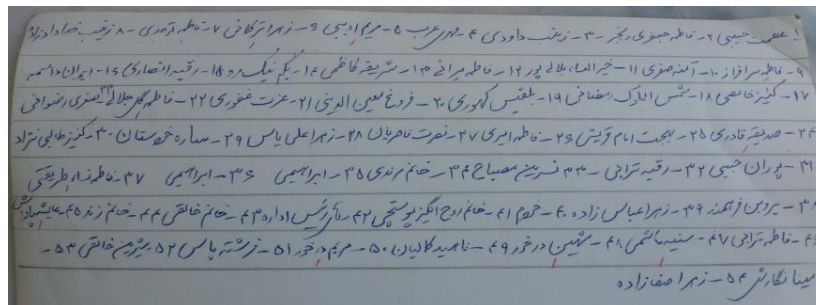 ۱- عصمت حبیبی ۲- فاطمه جعفری رنجبر ۳- زینب داودی ۴- مهری عرب ۵- مریم ادیبی ۶- زهرا ترکمانی ۷- فاطمه ترمدی ۸- زینب
۹- فاطمه سرافراز ۱۰- آمنه صفری ۱۱- خیرالنساء بلالی پور ۱۲- فاطمه میرانی ۱۳- شریفه کاظمی ۱۴- بیگم نیک رو ۱۵- رقیه انصاری ۱۶- ایران
۱۷- کنیز خانمی ۱۸- شمس الملوک رمضانی ۱۹- بلقیس کهوری ۲۰- فروغ معین الدینی ۲۱- عزت غفوری ۲۲- فاطمه گل جلالی ۲۳- صغری رضوانی
۲۴- صدیقه قادری ۲۵- بهجت امام قریش ۲۶- فاطمه امیری ۲۷- نصرت ناصریان ۲۸- زهرا علی یاس ۲۹- ساره خرسقان ۳۰- کنیز طالبی نژاد
۳۱- پوران حبیبی ۳۲- رقیه ترابی ۳۳- نسرین مصباح ۳۴- خانم مرندی ۳۵- ابراهیمی ۳۶- ابراهیمی ۳۷- فاطمه نساء طریقتی
۳۸- پروین فرهمند ۳۹- زهرا عباس زاده ۴۰- خرم ۴۱- خانم روح انگیز پوستچی ۴۲- رئیس اداره ۴۳- خانم خالقی ۴۴- خانم زند ۴۵-
۴۶- فاطمه ترابی ۴۷- سنیه هاشمی ۴۸- شهین درخور ۴۹- ناهید کالیان ۵۰- مریم درخور ۵۱- فرشته یاس ۵۲- شیرین خالقی ۵۳-
مینا نگارش ۵۴- زهرا صفازاده